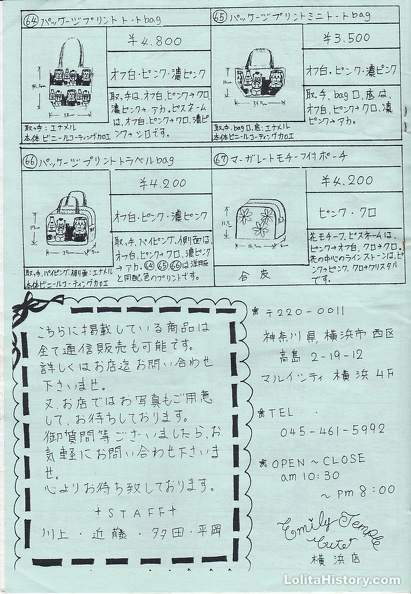 64 パッケージプリントトートbag
¥4.800
オフ白・ピンク・濃ピンク
取っ手は、オフ白、ピンク→クロ、濃
ピンク→アカ。ピスネーム
は、オフ白、ピンク→クロ、濃ピ
ンク→シロです。
取っ手:エナメル
本体:ビニールコーティングカロエ
65 パッケージプリントミニトートbag
¥3.500
オフ白・ピンク・濃ピンク
取っ手、bag口、底は、
オフ白、ピンク→クロ、濃
ピンク→アカ。
取っ手、bag口、底:エナメル
本体:ビニールコーティングカロエ
66 パッケージプリントトラベルbag
¥4.200
オフ白・ピンク・濃ピンク
取っ手、パイピング、側面は、
オフ白、ピンク→クロ、濃ピンク
→アカ。64 65 66は洋服
と同配色のプリントです。
取っ手、パイピング、側面:エナメル
本体:ビニールコーティングカロエ
67 マーガレットモチーフ付ポーチ
¥4.200
ピンク・クロ
花モチーフ、ピスネームは、
ピンク→オフ白、クロ→クロ。
花の中心のラインストーンは、ピ
ンク→ピンク、クロ→クリスタル
です。
合皮
こちらに掲載している商品は
全て通信販売も可能です。
詳しくはお店迄お問い合わせ
下さいませ。
又、お店ではお写真もご用意
して、お待ちしております。
御質問等ございましたら、お
気軽にお問い合わせ下さいま
せ。
心よりお待ち致しております。
†STAFF†
川上・近藤・多田・平岡
〒220-0011
神奈川県横浜市西区
高島 2-19-12
マルイシティ横浜4F
TEL
045-461-5992
OPEN〜CLOSE
am 10:30
〜pm 8:00
Emily Temple
Cute
横浜店
LolitaHistory.com